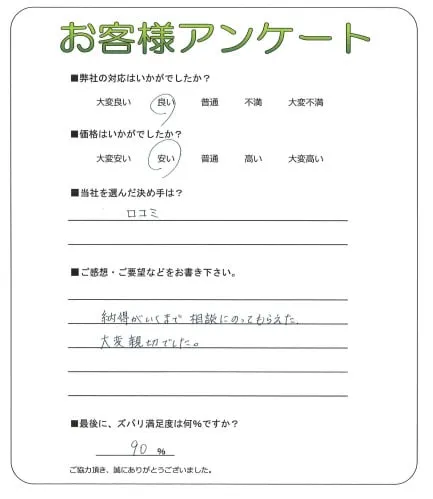 お客様アンケート
■弊社の対応はいかがでしたか？
大変良い 良い 普通 不満 大変不満
■価格はいかがでしたか？
大変安い 安い 普通 高い 大変高い
■当社を選んだ決め手は？
口コミ
■ご感想・ご要望などをお書き下さい。
納得がいくまで 相談にのってもらえた、
大変親切でした。
■最後に、ズバリ満足度は何％ですか？
90 %
ご協力頂き、誠にありがとうございました。